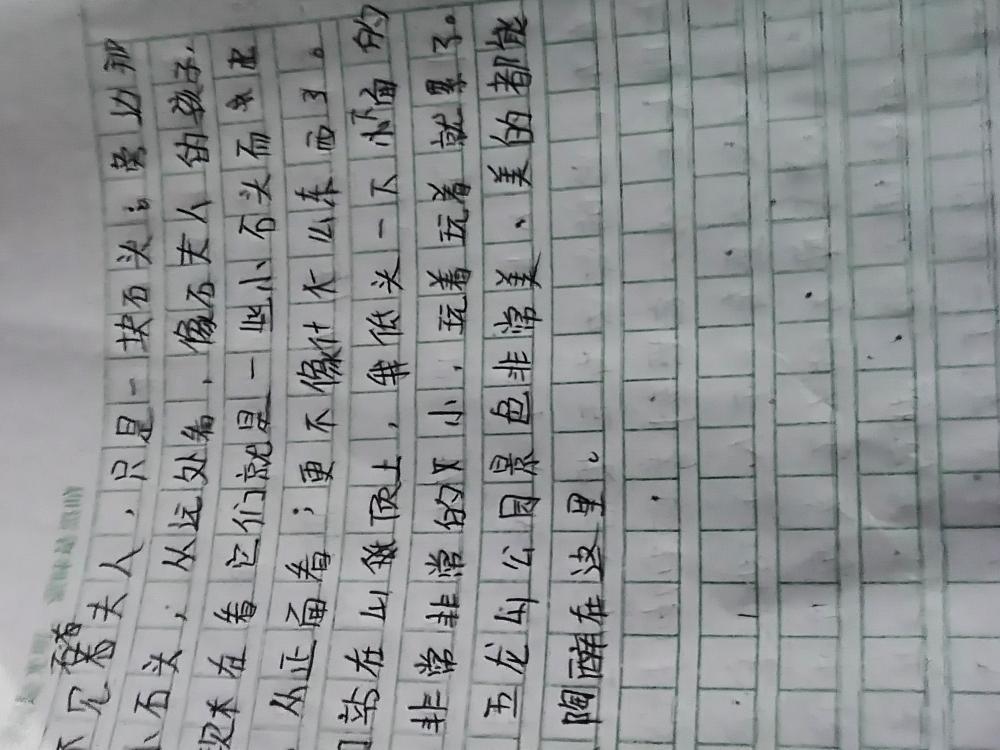 不见石夫人，只是一块石头；旁边那
小石头，从远处看，像石夫人的孩子，
现在看它们就是一些小石头而来
从正面看；更不像什么东西了。
们站在山顶上，我低头一下
非常非常的小，玩着玩着就累了。
五龙山公园景色非常美、美的都能
陶醉在这里。